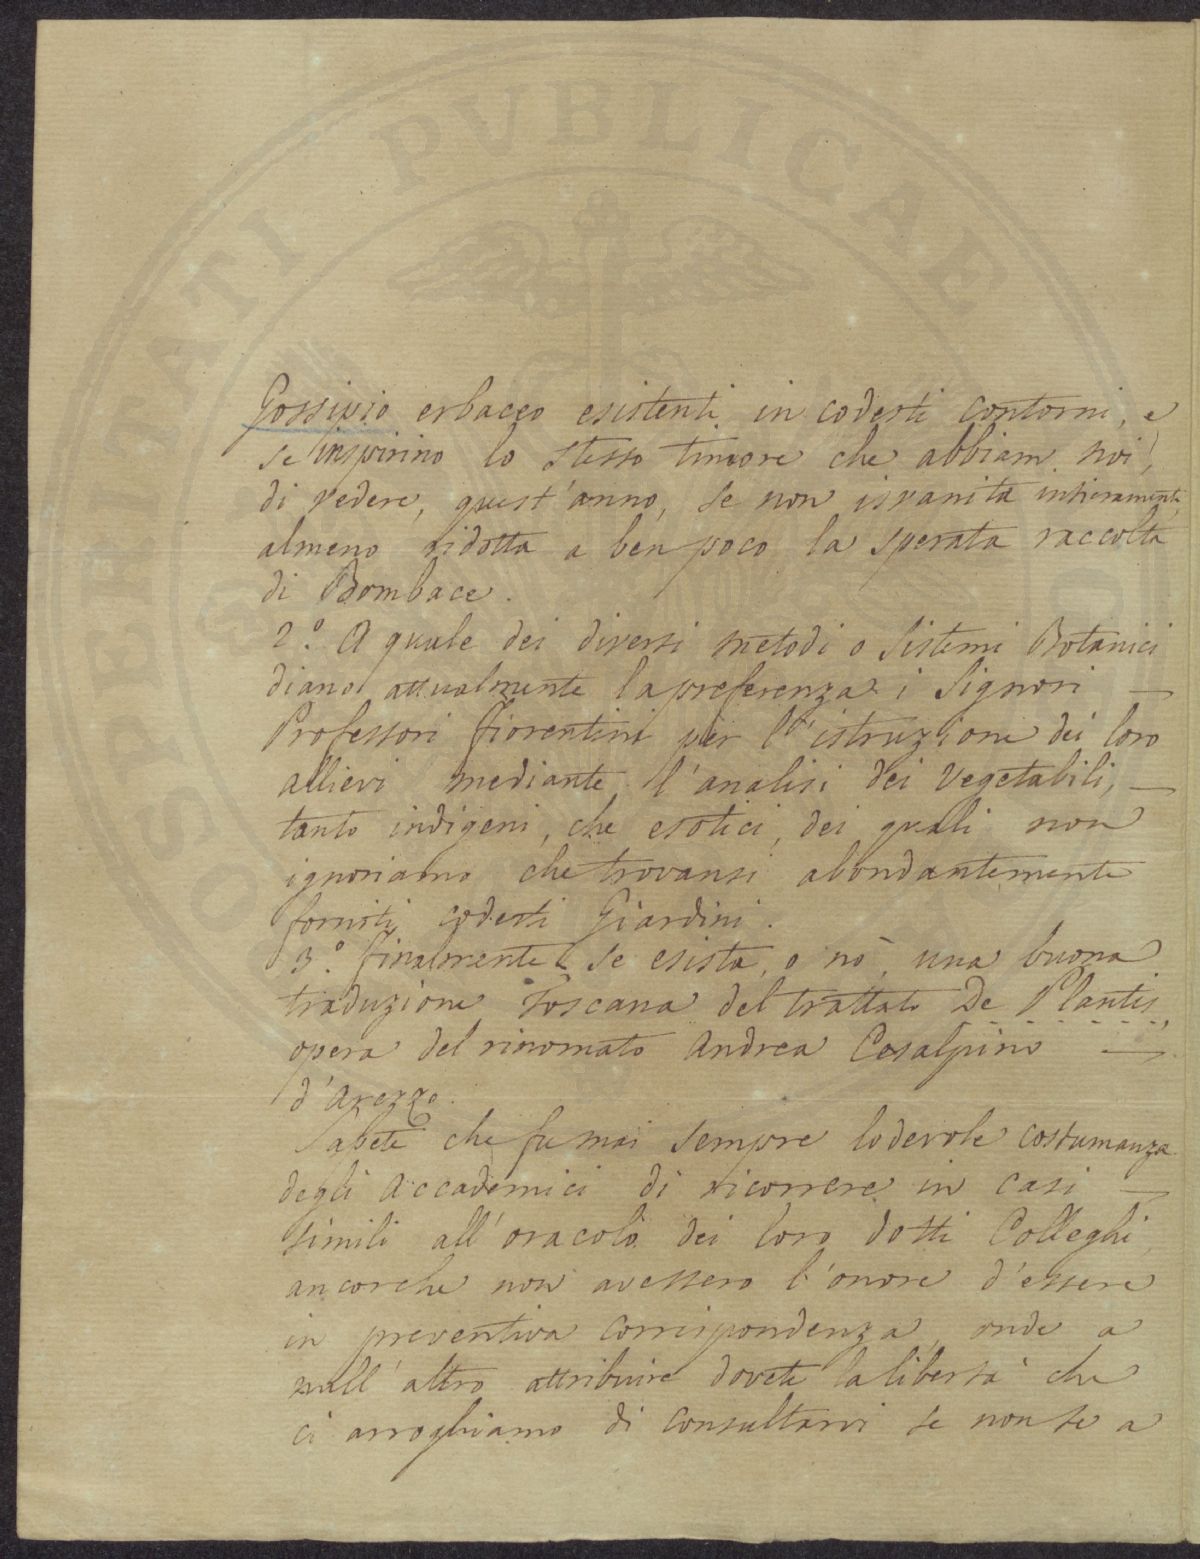 PROSPERITATI PVBLICAE
Gossipio erbaceo esistenti in codesti contorni, e
se inspirino lo stesso timore che abbiam noi,
di vedere, quest'anno, se non isvanita intieramente,
almeno ridotta a ben poco la sperata raccolta
di Bombace.
2.º A quale dei diversi metodi o Sistemi Botanici
diano attualmente la preferenza i Signori —
Professori Fiorentini per l'istruzione dei loro
allievi mediante l'analisi dei Vegetabili, —
tanto indigeni, che esotici, dei quali non
ignoriamo che trovansi abondantemente
forniti codesti Giardini.
3.º Finalmente se esista, o nò, una buona
traduzione Toscana del trattato De Plantis,
opera del rinomato Andrea Cesalpino —
d'Arezzo.
Sapete che fu mai sempre lodevole costumanza
degli Accademici di ricorrere in casi —
simili all'oracolo dei loro dotti Colleghi,
ancorche non avessero l'onore d'essere
in preventiva corrispondenza, onde a
null'altro attribuire dovete la libertà che
ci arroghiamo di consultarvi se non se a